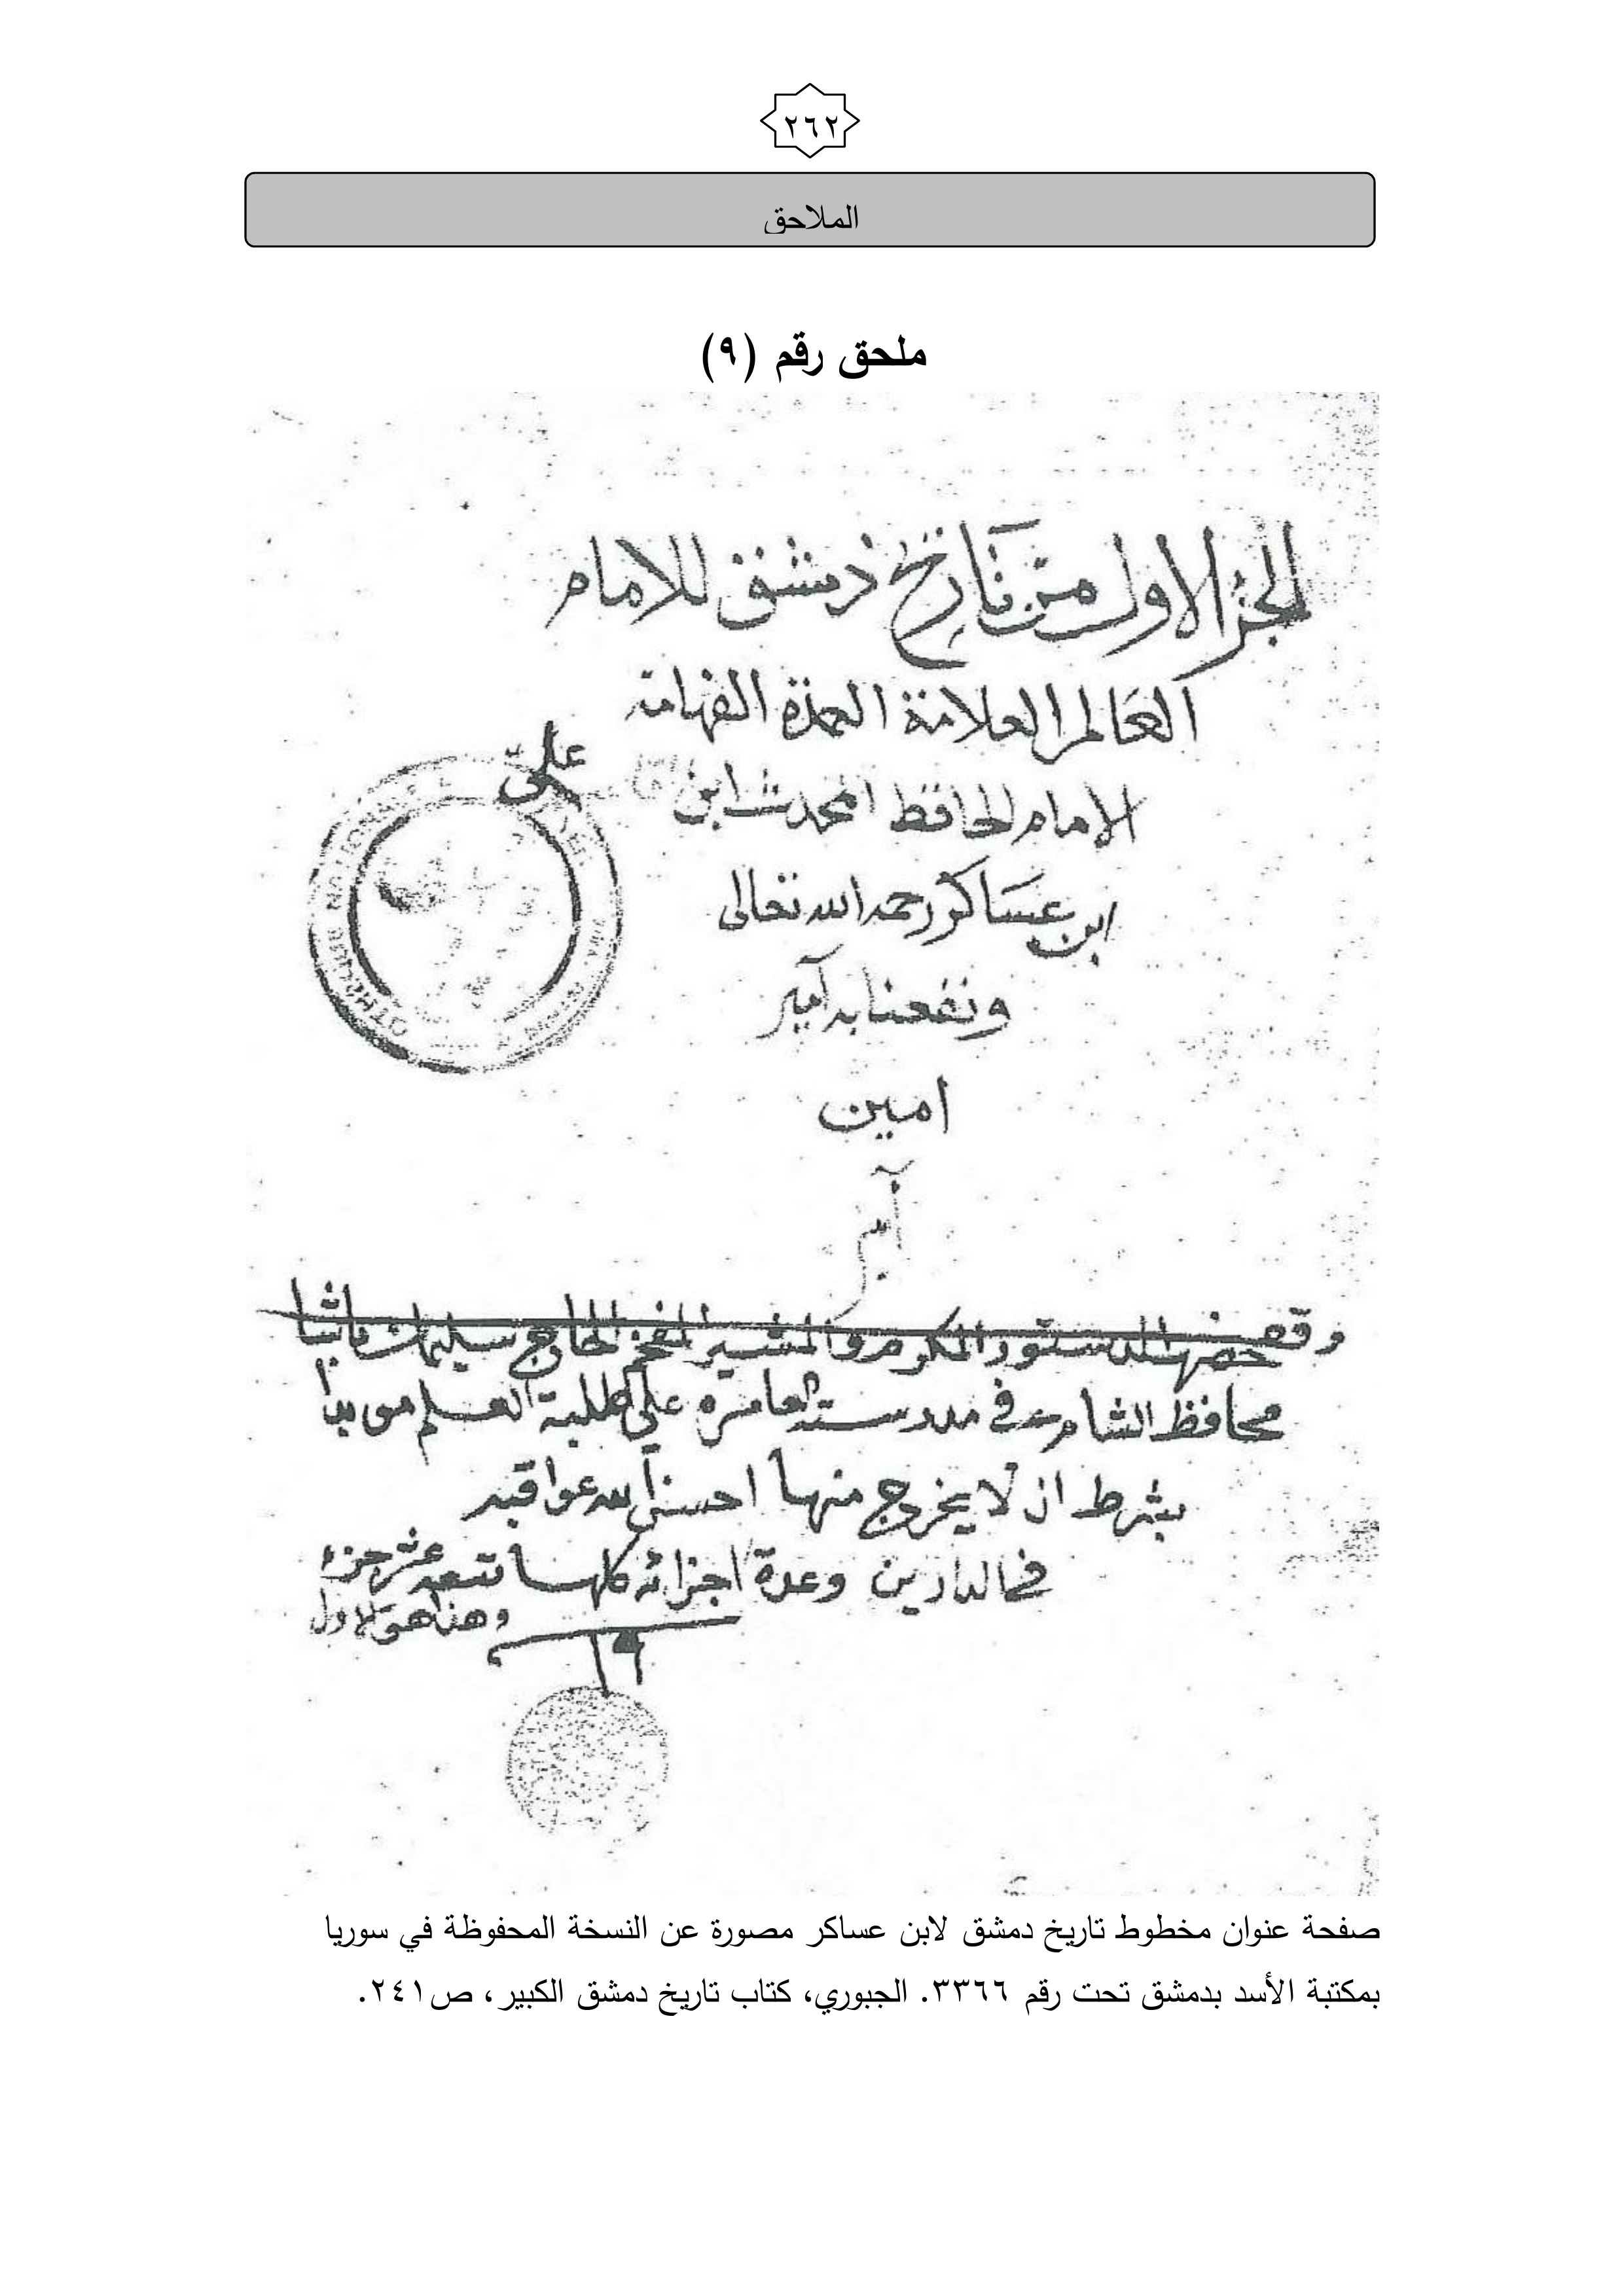 ٢٦٢
الملاحق
ملحق رقم (٩)
الجزء الاول من تاريخ دمشق للامام
العالم العلامة العمدة الفهامة
الامام الحافظ المحدث ابن
علي
ابن عساكر رحمه الله تعالى
ونفعنا به آمين
امين
آمين
وقف حضرة الدستور المكرم والمشير المفخم الحاج سليمان باشا
محافظ الشام في مدرسته العامره على طلبة العلم
بشرط ان لا يخرج منها احسن الله عواقبه
في الدارين وعدة اجزائه كلها تسعه عشر جزء
وهذا هو الاول
١٩
BIBLIOTHEQUE NATIONALE
صفحة عنوان مخطوط تاريخ دمشق لابن عساكر مصورة عن النسخة المحفوظة في سوريا
بمكتبة الأسد بدمشق تحت رقم ٣٣٦٦. الجبوري، كتاب تاريخ دمشق الكبير، ص٢٤١.